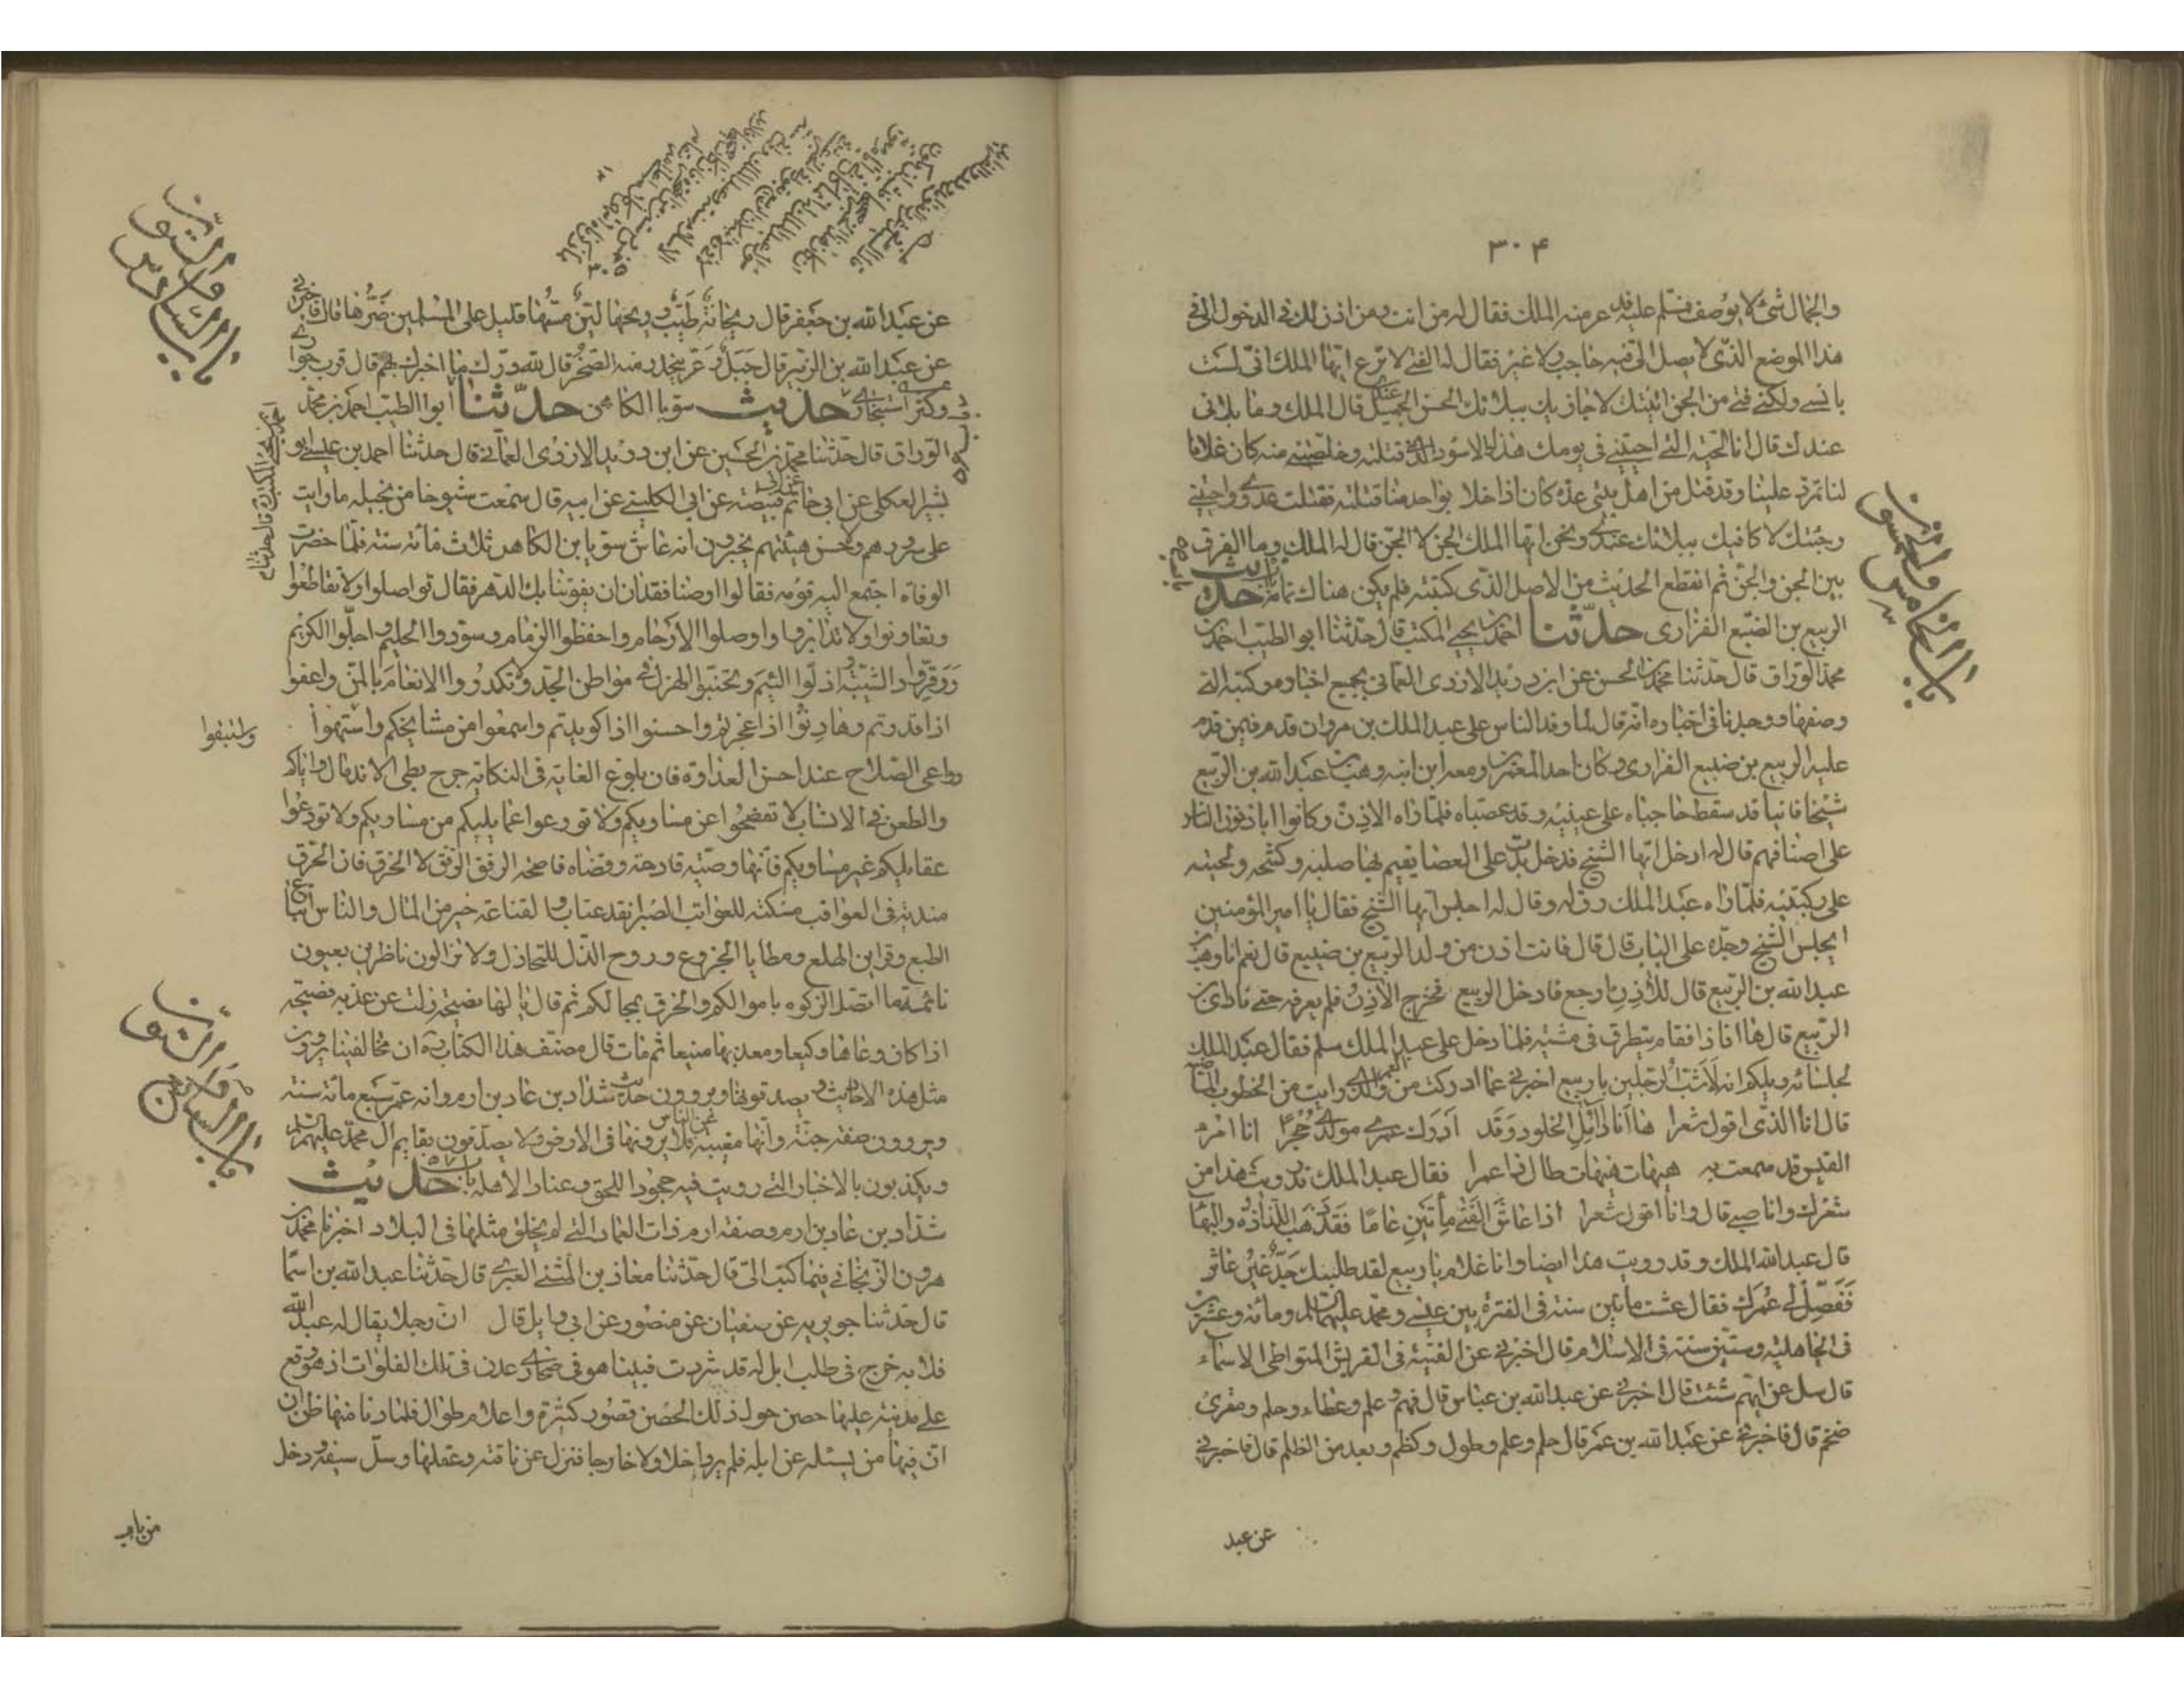 ۳۰۴
والجمال شئ لا يوصف فسلم عليه فذعر منه الملك فقال له من انت ومن اذن لك فى الدخول الىّ فى
هذا الموضع الذى لا يصل الىّ فيه حاجب ولا غيره فقال له الفتى لا ترع ايها الملك انى لست
بانسى ولكنى فتى من الجن اتيتك لاجازيك ببلائك الحسن الجميل عندى قال الملك وما بلائى
عندك قال انا الحية التى احييتنى فى يومك هذا والاسود الذى قتلته وخلصتنى منه كان غلاما
لنا تمرد علينا وقد قتل من اهل بيتى عدة كان اذا خلا بواحد منا قتله فقتلت عدوى واحييتنى
وجئتك لاكافيك ببلائك عندى ونحن ايها الملك الجن لا الجن قال له الملك وما الفرق
بين الجن والجن ثم انقطع الحديث من الاصل الذى كتبته فلم يكن هناك تمامه باب حديث
الربيع بن الضبع الفزارى حدّثنا احمد بن يحيى المكتب قال حدثنا ابو الطيب احمد بن
محمد الوراق قال حدثنا محمد بن الحسن عن ابن دريد الازدى العمانى بجميع اخباره وكتبه التى
وصفها ووجدنا فى اخباره انه قال لما وفد الناس على عبد الملك بن مروان قدم فيمن قدم
عليه الربيع بن ضبيع الفزارى وكان احد المعمرين ومعه ابن ابنه وهب بن عبد الله بن الربيع
شيخا فانيا قد سقط حاجباه على عينيه وقد عصباه فلما راه الاذن وكانوا ياذنون الناس
على اصنافهم قال له ادخل ايها الشيخ فدخل يدب على العصا يقيم بها صلبه وكشحه ولحيته
على ركبتيه فلما راه عبد الملك رق له وقال له اجلس ايها الشيخ فقال يا امير المؤمنين
ايجلس الشيخ وجده على الباب قال قال فانت اذن من ولد الربيع بن ضبيع قال نعم انا وهب بن
عبد الله بن الربيع قال للاذن ارجع فادخل الربيع فخرج الاذن فلم يعرفه حتى نادى اين
الربيع قال ها انا ذا فقام يتطرق فى مشيه فلما دخل على عبد الملك سلم فقال عبد الملك
لجلسائه ويلكم انه لاشب الرجلين يا ربيع اخبرنى عما ادركت من العمر والذى رايت من الخطوب الماضية
قال انا الذى اقول شعرا ها انا ذا آمل الخلود وقد ادرك عمرى مولدى حجرا انا امرء
القيس قد سمعت به هيهات هيهات طال ذا عمرا فقال عبد الملك قد رويت هذا من
شعرك وانا صبى قال وانا اقول شعرا اذا عاش الفتى مأتين عاما فقد ذهب اللذاذة والبهاء
قال عبد الله الملك وقد رويت هذا ايضا وانا غلام يا ربيع لقد طلبك جدّ غير عاثر
ففصّل لى عمرك فقال عشت مائتين سنة فى الفترة بين عيسى ومحمد عليهما السلام ومائه وعشرين
فى الجاهلية وستين سنة فى الاسلام قال اخبرنى عن الفتية فى القريش المتواطى الاسماء
قال سل عن ايهم شئت قال اخبرنى عن عبد الله بن عباس قال فهم وعلم وعطاء وحلم ومقرى
ضخم قال فاخبرنى عن عبد الله بن عمر قال حلم وعلم وطول وكظم وبعد من الظلم قال فاخبرنى
عن عبد
باب الخامس والخمسون
عن عبد الله بن جعفر قال ريحانة طيّب ريحها ليّن مسّها قليل على المسلمين ضرّها قال فاخبرنى
عن عبد الله بن الزبير قال جبل وعر ينحدر منه الصخر قال لله درّك ما اخبرك بهم قال قرب جوارى
وكثر استخبارى حديث سوبا الكاهن حدّثنا ابو الطيب احمد بن محمد
الوراق قال حدثنا محمد بن الحسين عن ابن دريد الازدى العمانى قال حدثنا احمد بن عيسى ابو
بشير العكلى عن ابى حاتم عن ابى قبيصة عن ابى الكلبى عن ابيه قال سمعت شيوخا من بجيله ما رايت
على سروهم وحسن هيئتهم يخبرون انه عاش سوبا بن الكاهن ثلاث مائه سنة فلما حضرت
الوفاة اجتمع اليه قومه فقالوا اوصنا فقد ان ان يفوتنا بك الدهر فقال تواصلوا ولا تقاطعوا
وتعاونوا ولا تدابروا واوصلوا الارحام واحفظوا الزمام وسودوا الحليم واجلوا الكريم
ووقروا ذا الشيبة واذلوا اللئيم وتجنبوا الهزل فى مواطن الجد ولا تكدروا الانعام بالمن واعفوا
اذا قدرتم وهادنوا اذا عجزتم واحسنوا اذا كويدتم واسمعوا من مشايخكم واستبهوا
دواعى الصلاح عند احن العداوة فان بلوغ الغاية فى النكاية جرح بطى الاندمال واياكم
والطعن فى الانساب لا تفضحوا عن مساويكم ولا تودعوا عما يليكم من مساويكم ولا تودعوا
عقايلكم غير مساويكم فانها وصمة قادحة وقضاة فاضحة الرفق الرفق لا الخرق فان الخرق
مندبة فى العواقب مكسبة للعوائب الصبر انفذ عتاب والقناعة خير من المال والناس اتباع
الطمع وقراين الهلع ومطايا الجزوع وروح الذل للتخاذل ولا تزالون ناظرين بعيون
نائمة ما اتصل الزكوه باموالكم والخرق بمحالكم ثم قال يا لها نصيحة زلت عن عذبة فصيحة
اذا كان وعاها وكيعا ومعدنها منيعا ثم مات قال مصنف هذا الكتاب ره ان مخالفينا يروون
مثل هذه الاحاديث ويصدقونها ويروون حديث شداد بن عاد بن ارم وانه عمّر سبع مائه سنة
ويروون صفة جنته وانها مغيبة عن الناس فلا يرونها فى الارض ولا يصدقون بقايم ال محمد عليهم السلام
ويكذبون بالاخبار التى رويت فيه جحودا للحق وعنادا لاهله باب حديث
شداد بن عاد بن ارم وصفة ارم ذات العماد التى لم يخلق مثلها فى البلاد اخبرنا محمد بن
هرون الزنجانى فيما كتب الىّ قال حدثنا معاذ بن المثنى العنبرى قال حدثنا عبد الله بن اسما
قال حدثنا جويريه عن سفيان عن منصور عن ابى وايل قال ان رجلا يقال له عبد الله
فلابه خرج فى طلب ابل له قد شردت فبينا هو فى صحارى عدن فى تلك الفلوات اذ هو وقع
على مدينة عليها حصن حول ذلك الحصن قصور كثيرة واعلام طوال فلما دنا منها ظن ان
ان فيها من يسئله عن ابله فلم ير داخلا ولا خارجا فنزل عن ناقته وعقلها وسلّ سيفه ودخل
من باب
باب السادس والخمسون
باب السابع والخمسون